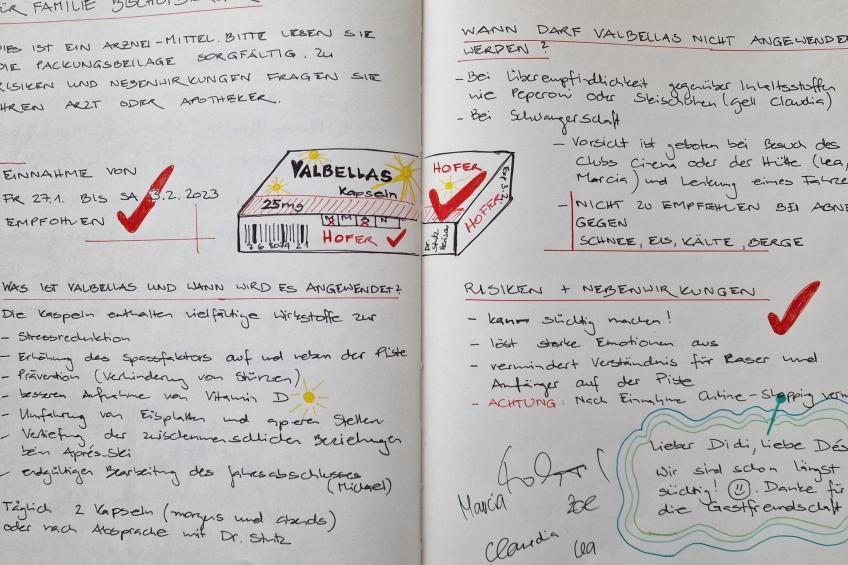 FÜR FAMILIE
DIES IST EIN ARZNEI-MITTEL. BITTE LESEN SIE
DIE PACKUNGSBEILAGE SORGFÄLTIG. ZU
RISIKEN UND NEBENWIRKUNGEN FRAGEN SIE
IHREN ARZT ODER APOTHEKER.
EINNAHME VON
FR 27.1. BIS SA 3.2. 2023
EMPFOHLEN
VALBELLAS
Kapseln
25mg
HOFER
HOFER
HOFER
Dr. Stutz
WAS IST VALBELLAS UND WANN WIRD ES ANGEWENDET?
Die Kaspeln enthalten vielfältige Wirkstoffe zur
- Stressreduktion
- Erhöhung des Spassfaktors auf und neben der Piste
- Prävention (Verhinderung von Stürzen)
- besseren Aufnahme von Vitamin D
- Umfahrung von Eisplatten und aperen Stellen
- Vertiefung der zwischenmenschlichen Beziehungen
beim Après-Ski
- endgültigen Bearbeitung des Jahresabschlusses
(Michael)
Täglich 2 Kapseln (morgens und abends)
oder nach Absprache mit Dr. Stutz
WANN DARF VALBELLAS NICHT ANGEWENDE
WERDEN?
- Bei Überempfindlichkeit gegenüber Inhaltsstoffen
wie Peperoni oder Skischuhen (gell Claudia)
- Bei Schwangerschaft
- Vorsicht ist geboten bei Besuch des
Clubs Cinema oder der Hütte (Lea,
Marcia) und Lenkung eines Fahrze
- NICHT ZU EMPFEHLEN BEI ABNE
GEGEN
SCHNEE, EIS, KÄLTE, BERGE
RISIKEN + NEBENWIRKUNGEN
- kann süchtig machen!
- löst starke Emotionen aus
- vermindert Verständnis für Raser und
Anfänger auf der Piste
- ACHTUNG: Nach Einnahme Online-Shopping verm
Lieber Didi, liebe Dés
Wir sind schon längst
süchtig! Danke für
die Gastfreundschaft
Marcia
Zoe
Claudia
Lea